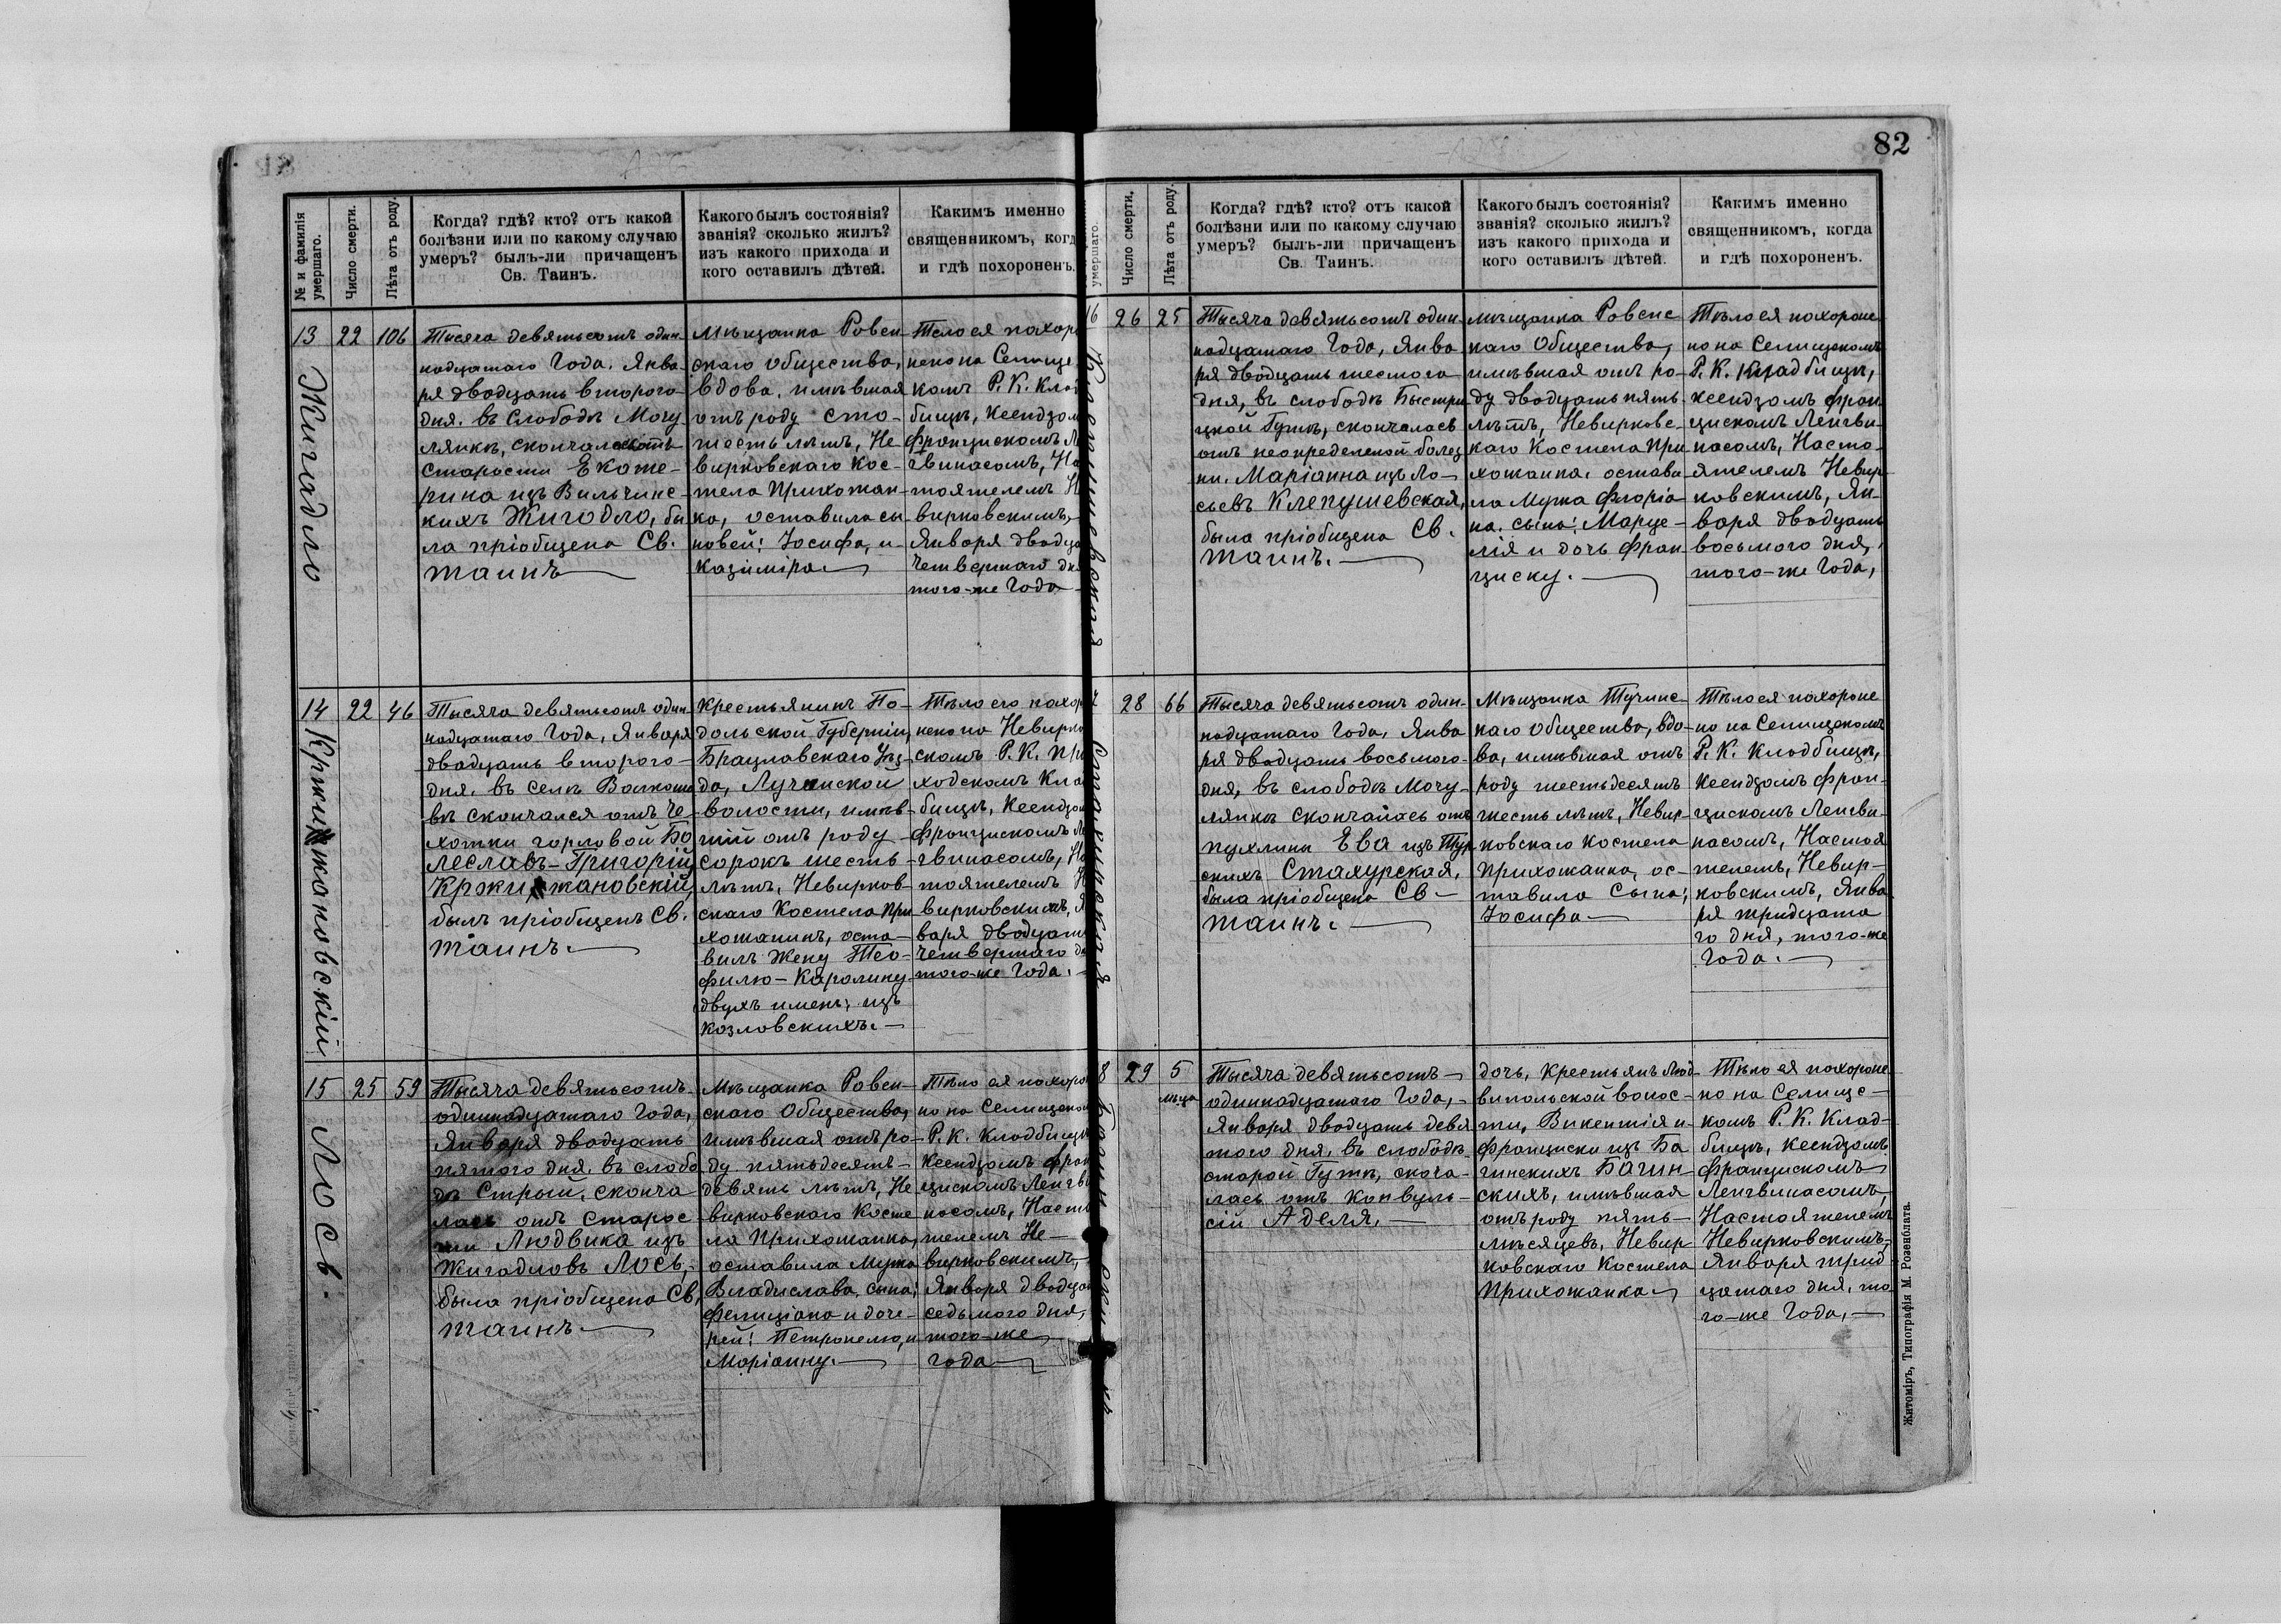 82
№ и фамилія умершаго.
Число смерти.
Лѣта отъ роду.
Когда? гдѣ? кто? отъ какой
болѣзни или по какому случаю
умеръ? былъ-ли причащенъ
Св. Таинъ.
Какого былъ состоянія?
званія? сколько жилъ?
изъ какого прихода и
кого оставилъ дѣтей.
Какимъ именно
священникомъ, когд
и гдѣ похороненъ.
13
Жигадло
22
106
Тысяча девятьсотъ один-
надцатаго Года. Янва-
ря двадцать второго
дня. въ слободѣ Мочу
лянкѣ, скончалась отъ
старости Екате-
рина изъ Вильчинс-
кихъ Жигадло, бы
ла пріобщена Св.
таинъ
мѣщанка Ровен-
скаго общества,
вдова. имѣвшая
отъ роду сто-
шесть лѣтъ, Не-
вирковскаго Кос-
тела Прихожан-
ка, оставила сы-
новей: Іосифа, и-
Казиміра.
Тело ея похоро
нено на Селище
комъ Р. К. Клад
бищѣ, Ксендзом
Францискомъ Ле
гвинасомъ, На
тоятелемъ Н
вирковскимъ,
Января двадца
Четвертаго дн
того-же Года
14
Кржижановскій
22
46
Тысяча девятьсотъ один-
надцатаго Года, Января
двадцать второго-
дня. въ селѣ Волкоше
вѣ скончался отъ Че-
хотки горловой Бо
леславъ-Григорій
Кржижановскій,
былъ пріобщенъ Св.
таинъ.
Крестьянинъ По-
дольской Губерніи,
Брацлавскаго Уѣз-
да, Лучинской
волости, имѣв-
шій отъ роду
сорокъ шесть
лѣтъ, Невирков-
скаго Костела При
хожанинъ, оста-
вилъ Жену Тео-
филю-Каролину
двухъ именъ, изъ
Козловскихъ.
Тѣло его похор
нено на Невирко
скомъ Р. К. При
ходскомъ Кла
бищѣ, Ксендзом
Францискомъ Ле
гвинасомъ, На
тоятелемъ Н
вирковскимъ, Я
варя двадцать
Четвертаго дн
того-же Года.
15
Лось.
25
59
Тысяча девятьсотъ-
одиннадцатаго Года,
Января двадцать
пятого дня. въ слобо
дѣ Стрый, сконча
лась отъ старос
ти Людвика изъ
Жигадловъ Лось,
была пріобщена Св.
таинъ.
Мѣщанка Ровен-
скаго Общества,
имѣвшая отъ ро-
ду пятьдесятъ-
девять лѣтъ, Не
вирковскаго Косте
ла Прихожанка,
оставила Мужа
Владислава, сына:
Фелиціана и доче-
рей: Петронелю, и
Маріанну.
Тѣло ея похоро
но на Селищском
Р. К. Кладбищѣ
Ксендзомъ Фран
цискомъ Ленгви
насомъ, Насто
телемъ Не-
вирковскимъ,
Января двадца
седьмого дня,
того-же
года
умершаго.
Число смерти.
Лѣта отъ роду.
Когда? гдѣ? кто? отъ какой
болѣзни или по какому случаю
умеръ? былъ-ли причащенъ
Св. Таинъ.
Какого былъ состоянія?
званія? сколько жилъ?
изъ какого прихода и
кого оставилъ дѣтей.
Какимъ именно
священникомъ, когда
и гдѣ похороненъ.
16
26
25
Тысяча девятьсотъ один
надцатаго Года, Янва
ря двадцать шестого
дня, въ слободѣ Быстри
цкой Гуткѣ, скончалась
отъ неопределеной болез
ни. Маріанна изъ Ло-
сьевъ Клепушевская,
была пріобщена Св.
таинъ.
мѣщанка Ровенс
каго Общества,
имѣвшая отъ ро-
ду двадцать пять-
лѣтъ, Невирковс-
каго Костела При
хожанка. остави
ла Мужа Флоріа-
на. сына: Марце-
лія и дочь Фран
циску.
Тѣло ея похороне
но на Селищскомъ
Р. К. Кладбищѣ,
ксендзомъ Фран
цискомъ Ленгви-
насомъ, Насто-
ятелемъ Невир
ковскимъ, Ян-
варя двадцать
восьмого дня,
того-же Года,
Стахурская
28
66
Тысяча девятьсотъ один-
надцатаго Года, Янва
ря двадцать восьмого-
дня, въ слободѣ Мочу-
лянкѣ скончалась отъ
пухлины Ева изъ Тур
скихъ Стахурская,
была пріобщена Св-
таинъ.
Мѣщанка Тучинс-
каго Общества, вдо-
ва, имѣвшая отъ
роду шестьдесятъ
шесть лѣтъ, Невир-
ковскаго Костела
Прихожанка, ос-
тавила Сына:
Іосифа
Тѣло ея похороне
но на Селищскомъ
Р. К. Кладбищѣ,
Ксендзомъ Фран-
цискомъ Ленгви-
насомъ, Настоя
телемъ, Невир-
ковскимъ, Янва
ря тридцата
го дня, того-же
Года.
8
29
5
мѣца
Тысяча девятьсотъ-
одиннадцатаго Года,-
Января двадцать девя
того дня, въ слободѣ
старой Гуткѣ, сконча-
лась отъ конвуль-
сій Аделя,
дочь, Крестьянъ Люд-
випольской волос-
ти, Викентія и-
Франциски изъ Ба
гинскихъ Багин-
скихъ, имѣвшая
отъ роду пять-
мѣсяцевъ, Невир-
ковскаго Костела
Прихожанка
Тѣло ея похороне
но на Селищс-
комъ Р. К. Клад-
бищѣ, Ксендзомъ
Францискомъ
Ленгвинасомъ,
Настоятелемъ
Невирковскимъ,
Января трид
цатаго дня, то
го-же Года,
Житоміръ, Типографія М. Розенблата.